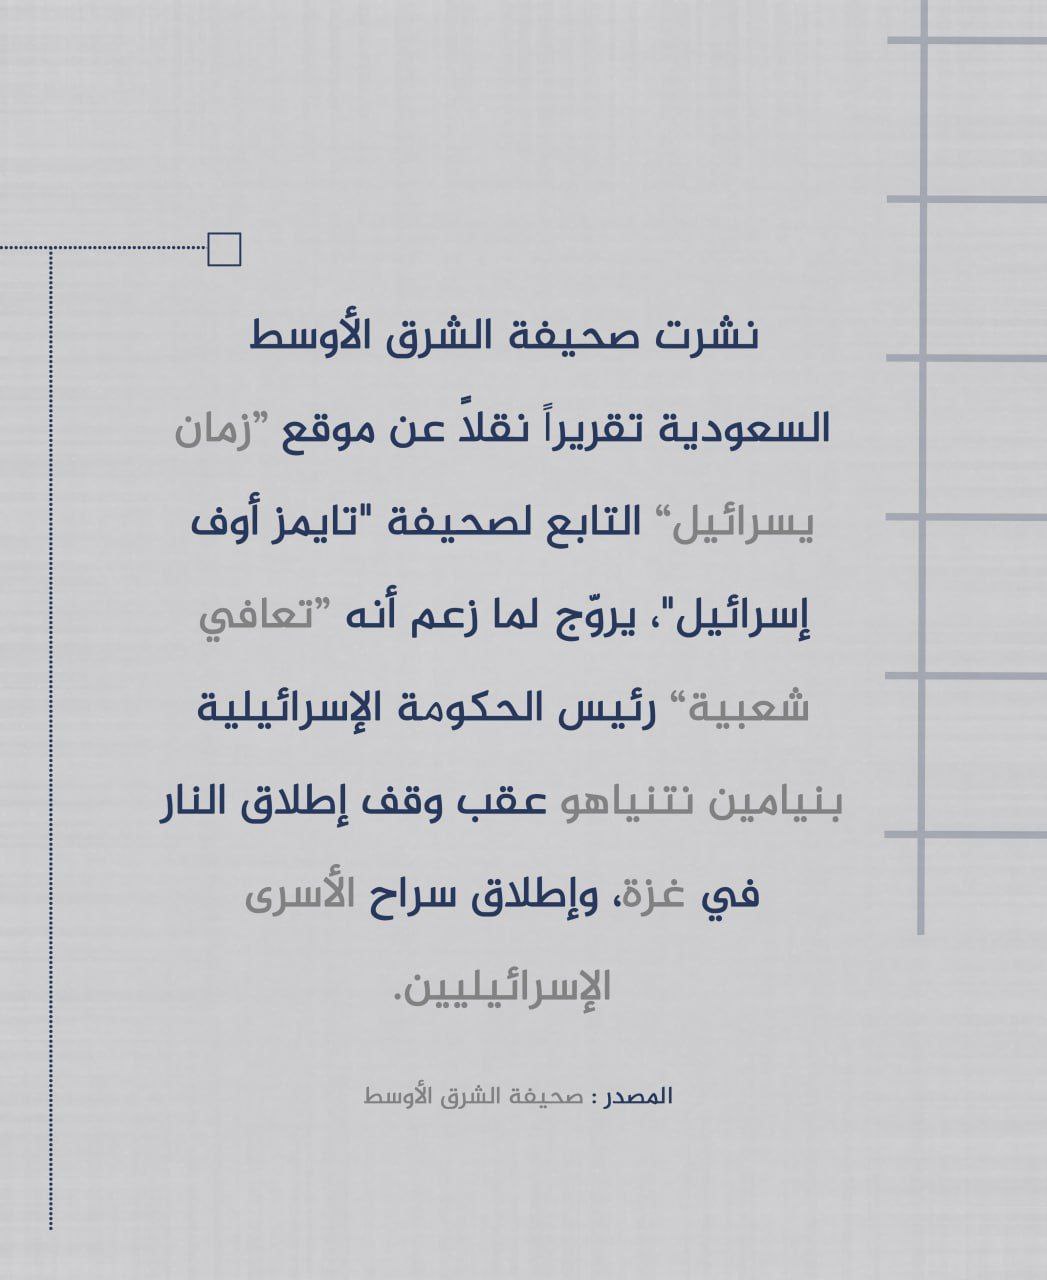 نشرت صحيفة الشرق الأوسط
السعودية تقريراً نقلاً عن موقع ”زمان
يسرائيل“ التابع لصحيفة "تايمز أوف
إسرائيل"، يروّج لما زعم أنه ”تعافي
شعبية“ رئيس الحكومة الإسرائيلية
بنيامين نتنياهو عقب وقف إطلاق النار
في غزة، وإطلاق سراح الأسرى
الإسرائيليين.
المصدر : صحيفة الشرق الأوسط